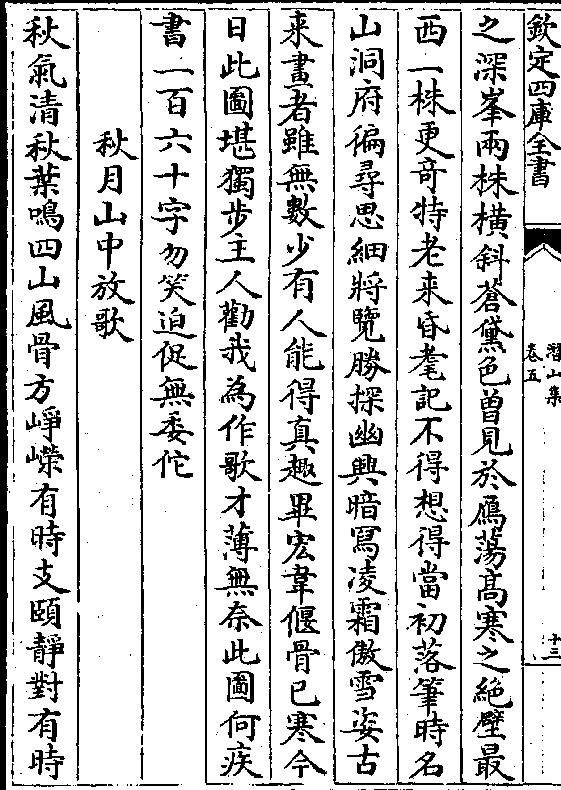 欽定四庫全書
潛山集
卷五
十三
之深峯兩株橫斜蒼黛色曽見於鴈蕩髙寒之絶壁最
西一株更竒特老来昏耄記不得想得當初落筆時名
山洞府徧尋思細將覽勝探幽興暗寫凌霜傲雪姿古
来畫者雖無數少有人能得真趣畢宏韋偃骨已寒今
日此圖堪獨步主人勸我為作歌才薄無奈此圖何疾
書一百六十字勿笑迫促無委佗
秋月山中放歌
秋氣清秋葉鳴四山風骨方崢嶸有時支頤靜對有時